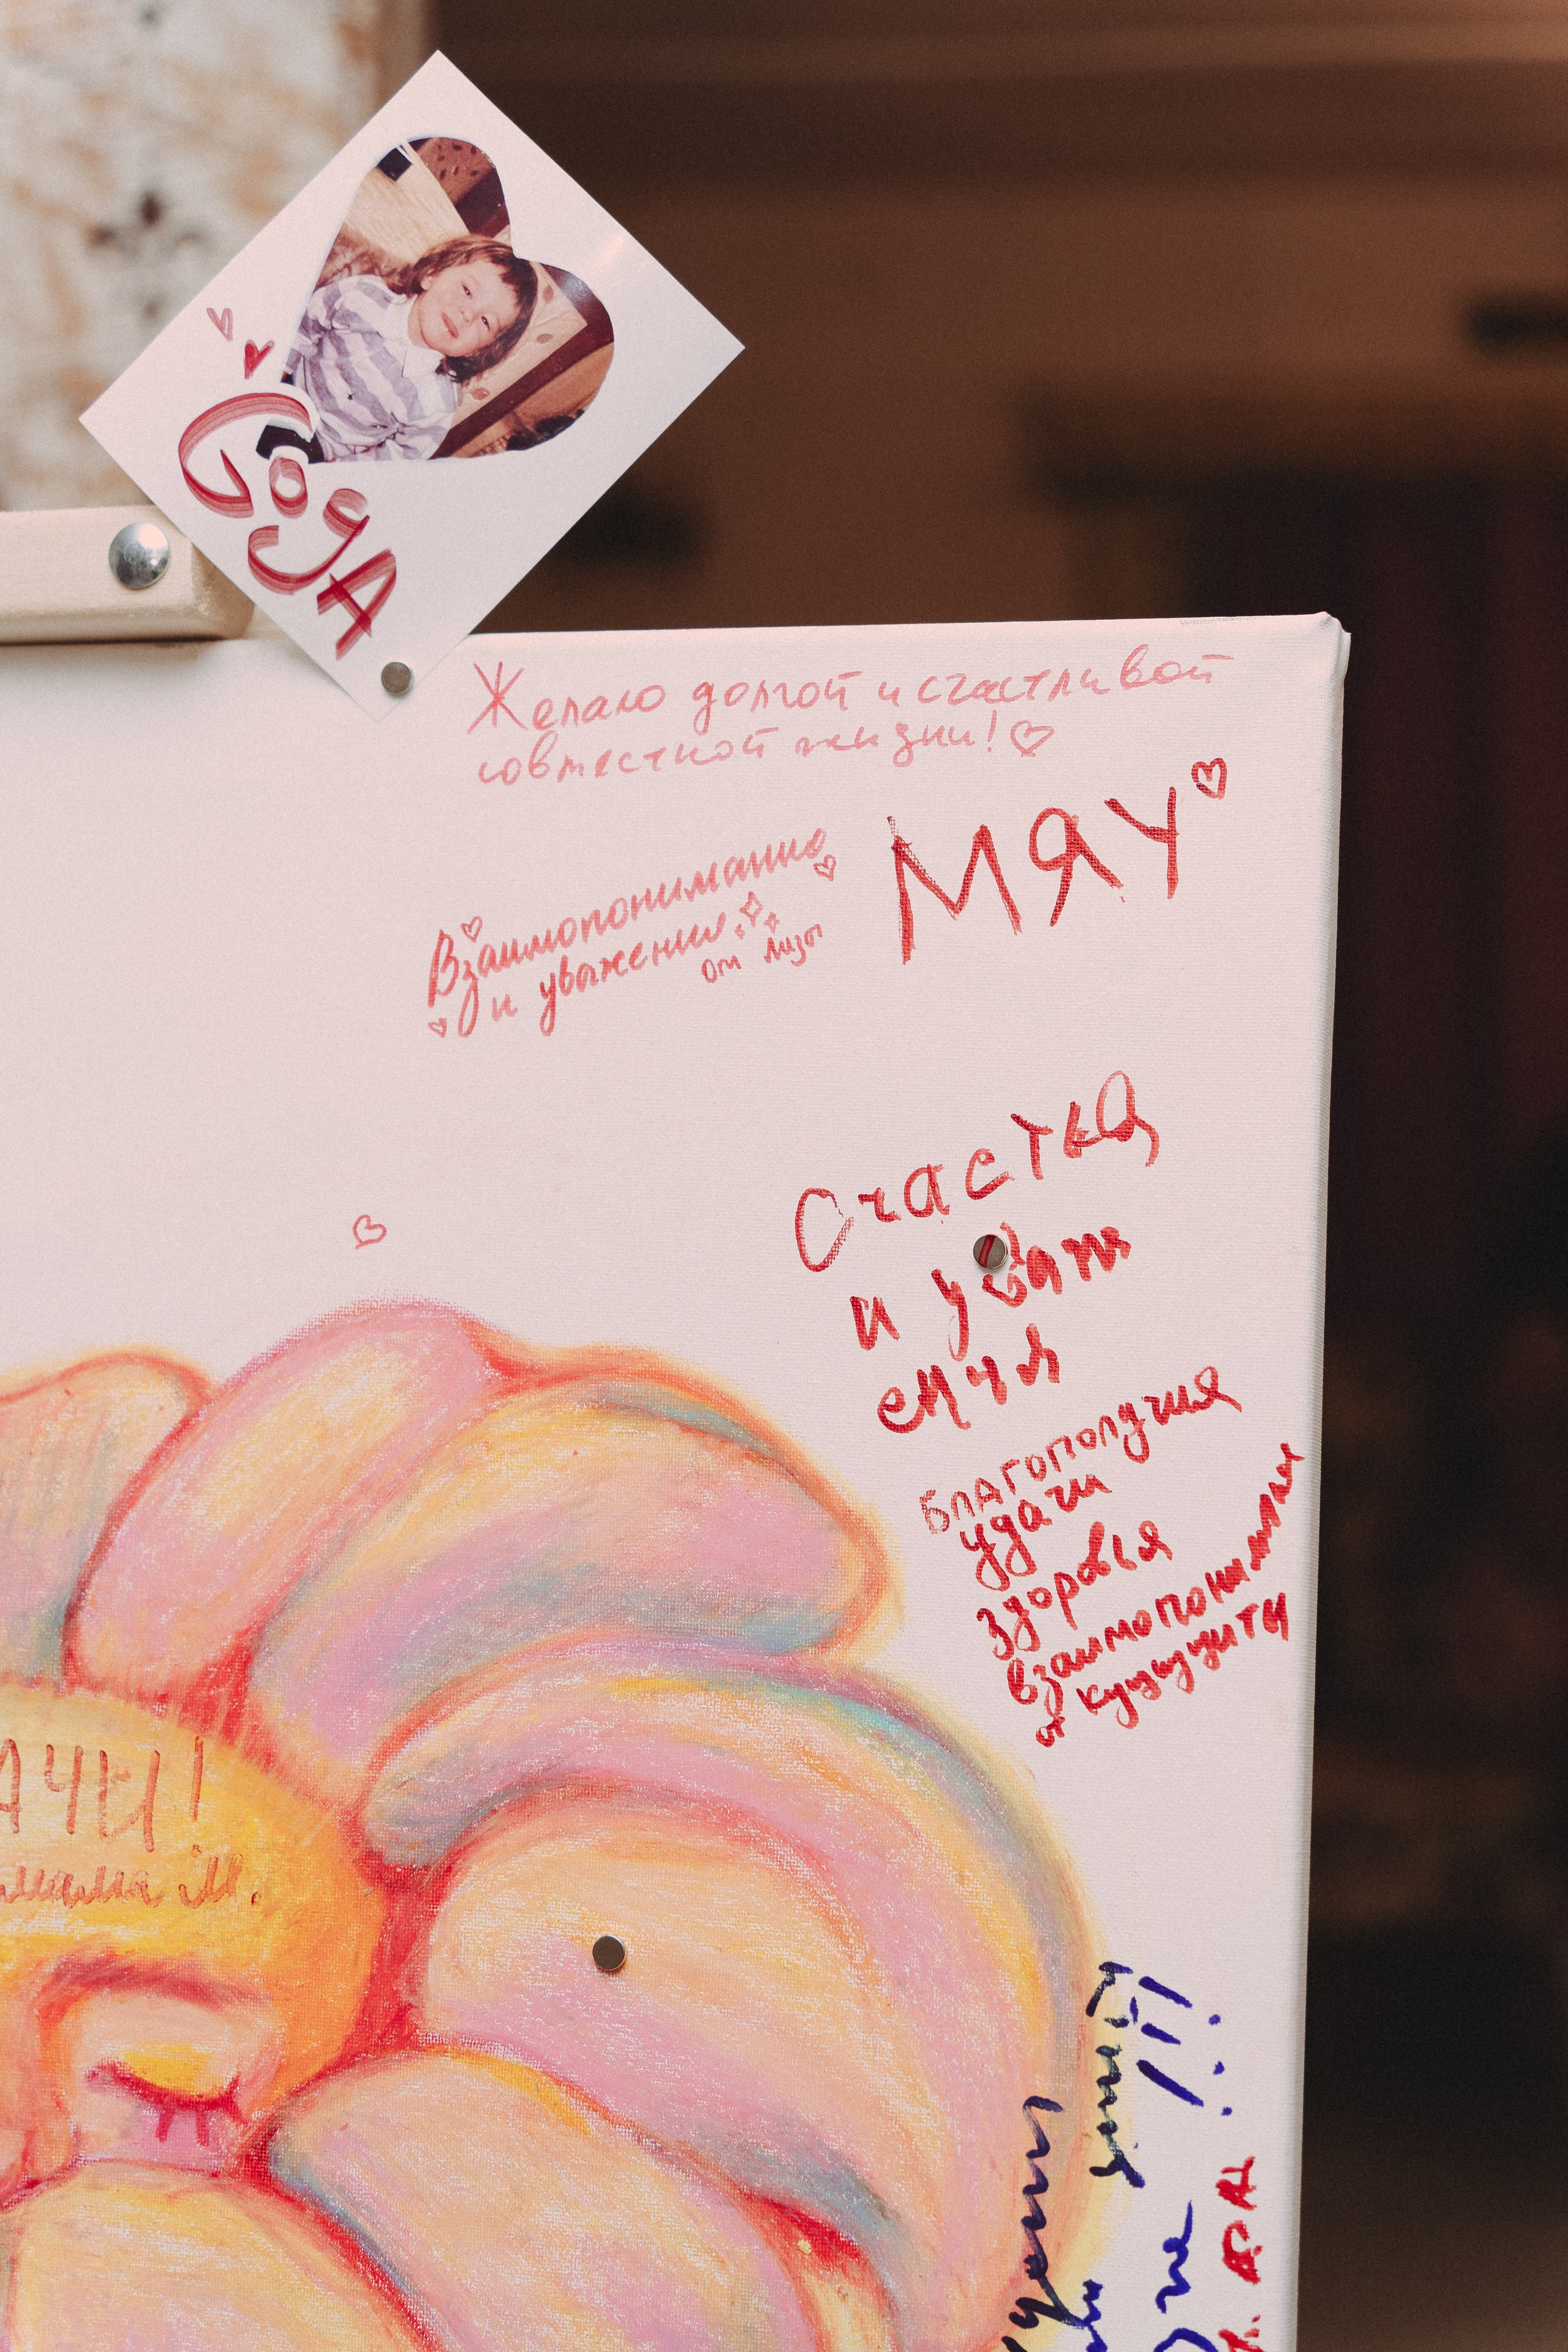 Сода
Желаю долгой и счастливой
совместной жизни!
МЯУ
Взаимопонимание
и уважения
от Лизы
Счастья
и уваж
ения
благополучия
удачи
здоровья
взаимопонимания
от Кущицити
АЧИ!
мама М.
!!!